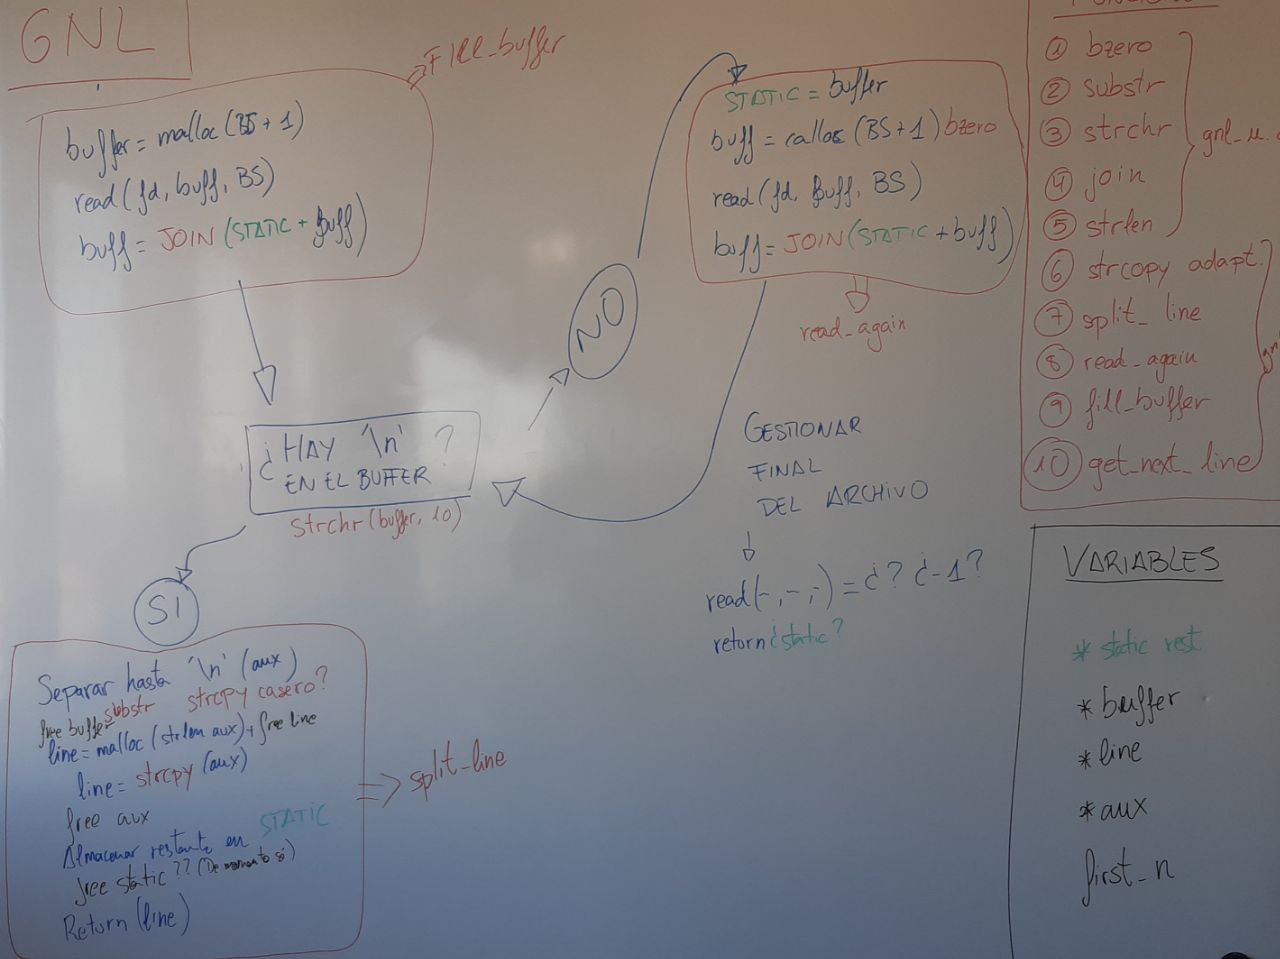 GNL
Fill_buffer
buffer = malloc (BS + 1)
read (fd, buff, BS)
buff = JOIN (STATIC + buff)
¿HAY '\n' ?
EN EL BUFFER
strchr (buffer, 10)
NO
STATIC = buffer
buff = calloc (BS+1) bzero
read (fd, buff, BS)
buff = JOIN (STATIC + buff)
read_again
SI
Separar hasta '\n' (aux)
substr strcpy casero?
free buffer
line = malloc (strlen aux) + free line
line = strcpy (aux)
free aux
Almacenar restante en STATIC
free static ?? (De momento si)
Return (line)
split_line
GESTIONAR
FINAL
DEL ARCHIVO
read (-, -, -) = ¿? ¿-1?
return ¿static?
① bzero
② substr
③ strchr
④ join
⑤ strlen
⑥ strcopy adapt.
⑦ split_line
⑧ read_again
⑨ fill_buffer
⑩ get_next_line
VARIABLES
* static rest
* buffer
* line
* aux
first_n